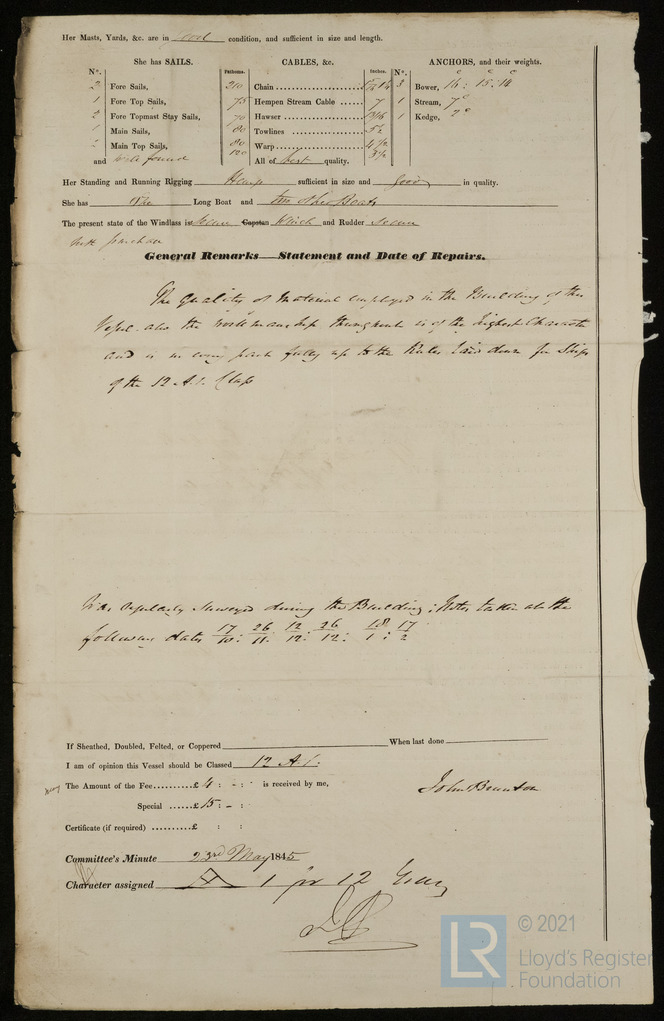 Her Masts, Yards, &c. are in good condition, and sufficient in size and length.
She has SAILS.
CABLES, &c.
ANCHORS, and their weights.
N°. Fathoms. Inches. N°.
2 Fore Sails, 210 Chain 3 Bower, 16 : 15 : 14
1 Fore Top Sails, 75 Hempen Stream Cable 7 1 Stream,
2 Fore Topmast Stay Sails, 70 Hawser 1 Kedge,
1 Main Sails, 80 Towlines 5½
2 Main Top Sails, 80 Warp 4½
and well found 120 All of best quality. 3½
Her Standing and Running Rigging Hemp sufficient in size and good in quality.
She has One Long Boat and two other Boats
The present state of the Windlass is Capstan Winch and Rudder
with purchase
General Remarks—Statement and Date of Repairs.
The quality of material employed in the Building of this
Vessel also the workmanship throughout is of the highest Character
and is in every part fully up to the Rules laid down for Ships
of the 12 A.1. Class
Was regularly surveyed during the Building; Notes taken at the
following dates 17/10: 26/11: 12/12: 26/12: 18/1: 17/2
If Sheathed, Doubled, Felted, or Coppered When last done
I am of opinion this Vessel should be Classed 12 A.1.
The Amount of the Fee..........£ 4 : - : - is received by me,
John Brunton
Special ......£ 15 : - :
Certificate (if required) ..........£ : :
Committee's Minute 23rd May 1845
Character assigned A 1 for 12 Years
© 2021
LR
Lloyd's Register
Foundation